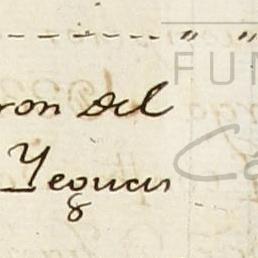 FUN
ron del
Ca
Yeguas